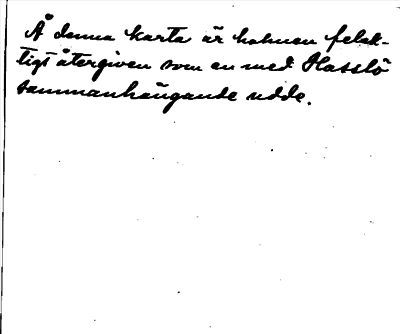 Å denna karta är holmen felak-
tigt återgiven som en med Hasslö
sammanhängande udde.